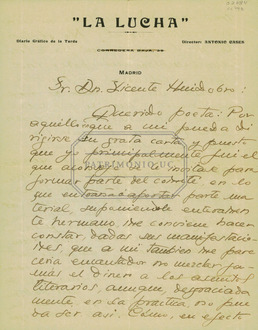 "LA LUCHA"
Diario Gráfico de la Tarde
Director: ANTONIO
MADRID
Sr. Dn. Vicente Huidobro:
Querido poeta: Por
aquello que a mi pueda di
rigirse su grata carta y puesto
que yo principalmente fui el
que a invitase para
formar parte del comite, en lo
que parte ma
terial, suponiendo enteramen
te hermano, me conviene hacer
constar, dadas sus manifestacio
nes, que a mi tambien me pare
cería encantador no mezclar ja
más el dinero a los asuntos
literarios, aunque, desgraciada
mente, en la práctica, no pue
da ser asi. Como, en efecto